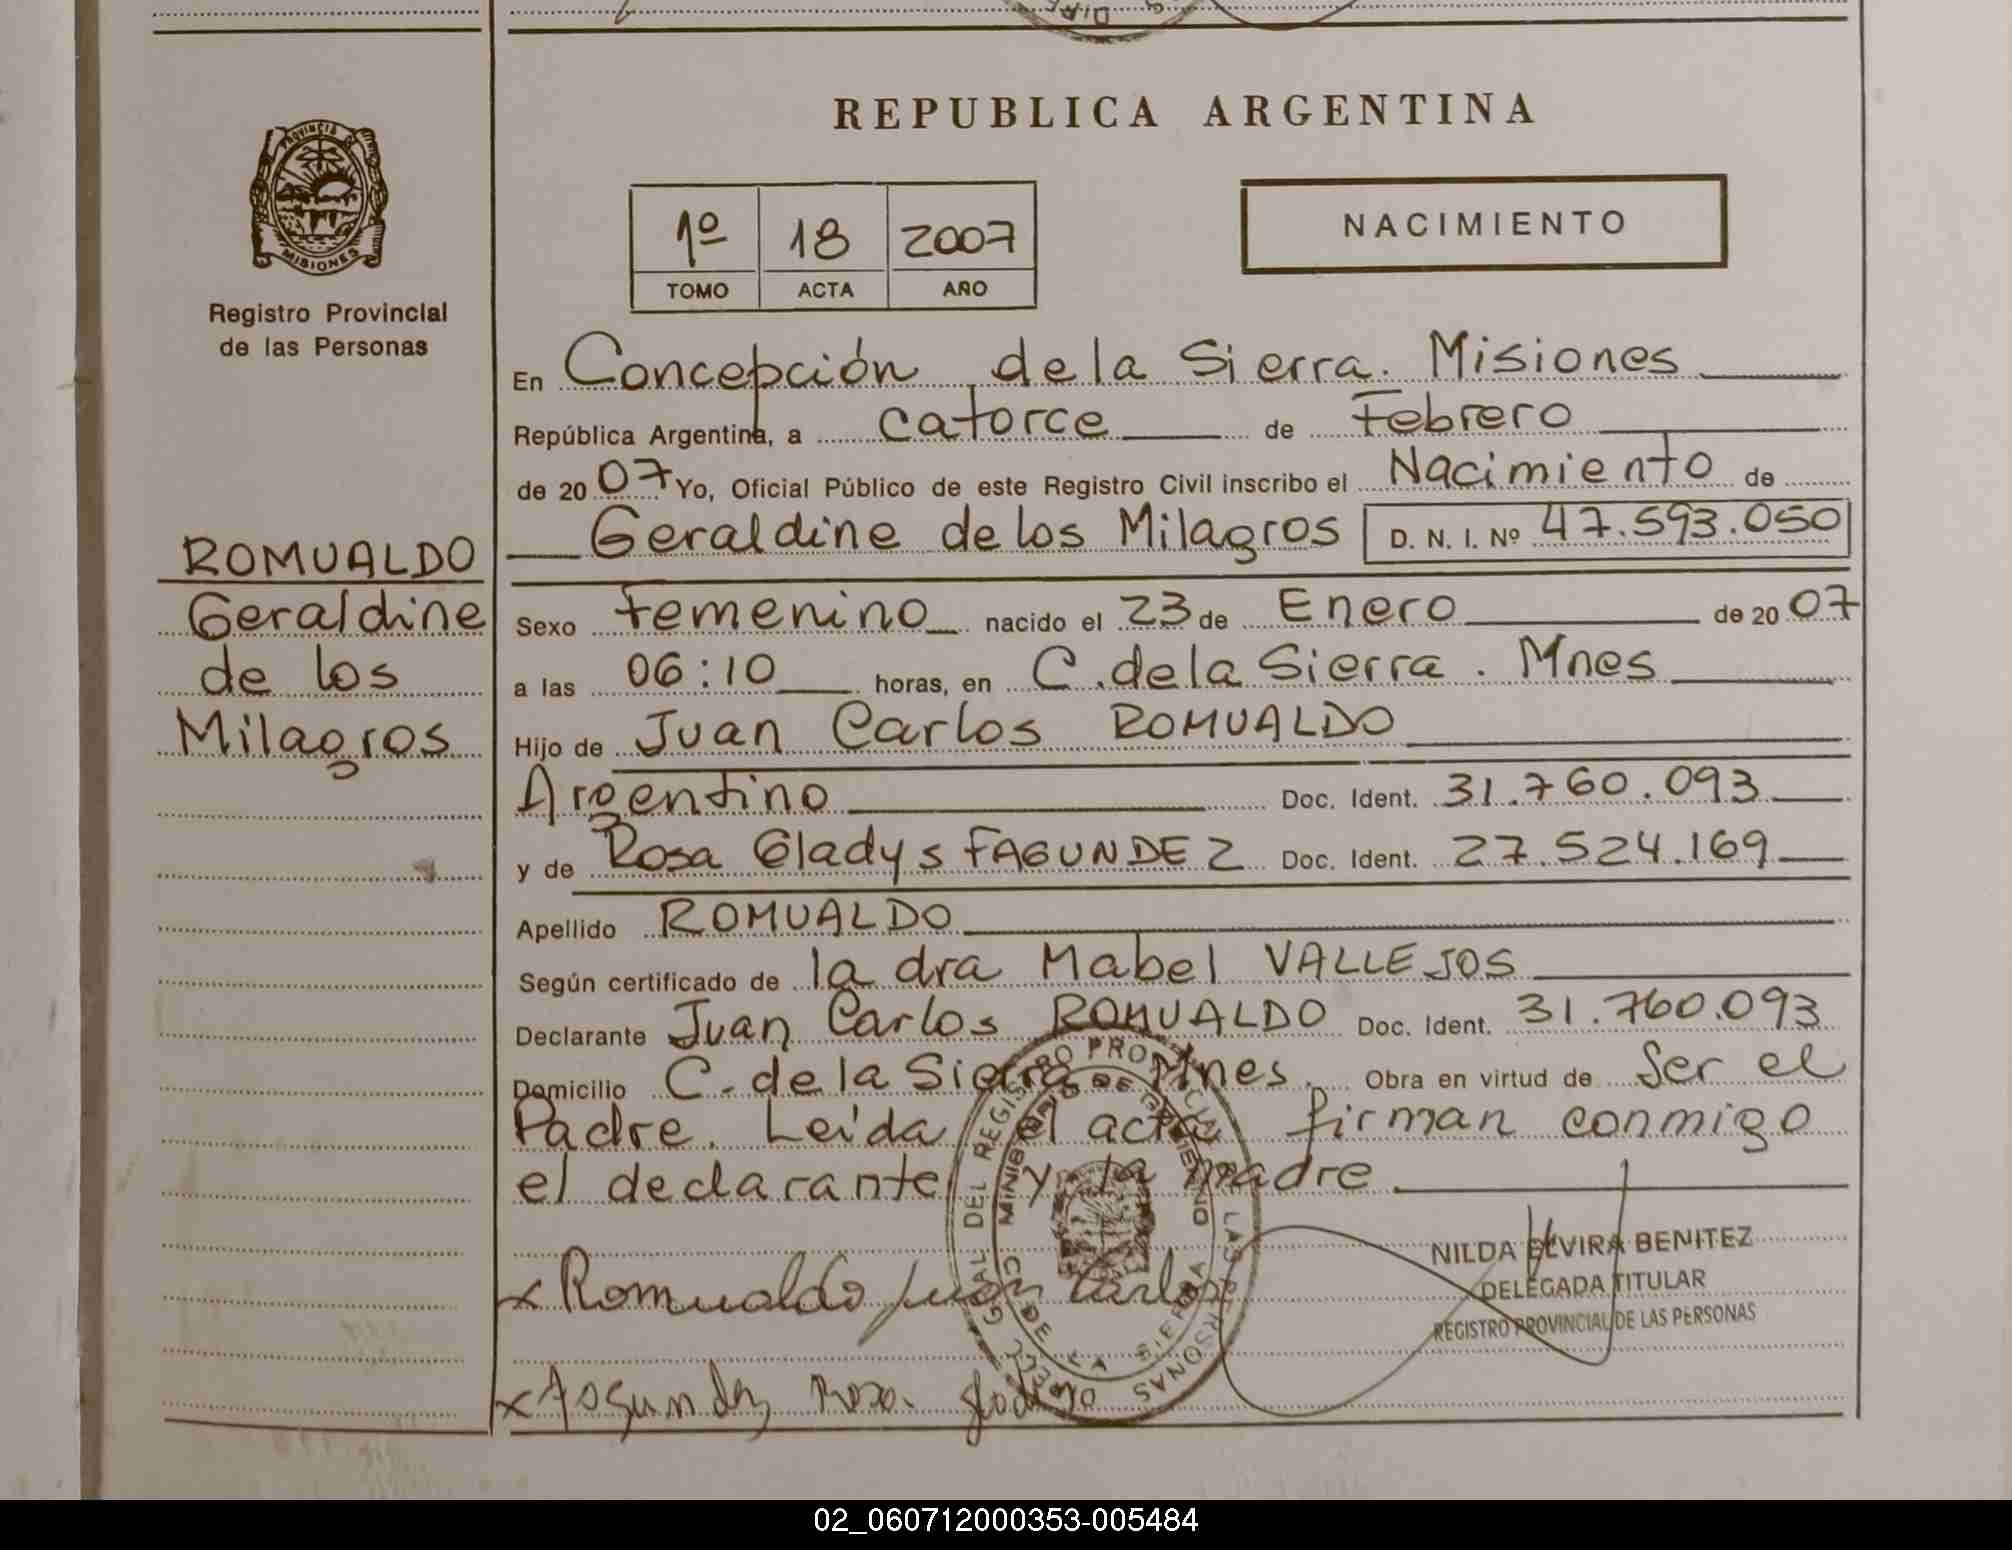 REPUBLICA ARGENTINA
PROVINCIA DE MISIONES
Registro Provincial
de las Personas
1º 18 2007
TOMO ACTA AÑO
NACIMIENTO
En Concepción de la Sierra. Misiones
República Argentina, a catorce de Febrero
de 20 07 Yo, Oficial Público de este Registro Civil inscribo el Nacimiento de
Geraldine de los Milagros D. N. I. Nº 47.593.050
ROMUALDO
Geraldine
de los
Milagros
Sexo Femenino nacido el 23 de Enero de 20 07
a las 06:10 horas, en C. de la Sierra. Mnes
Hijo de Juan Carlos ROMUALDO
Argentino Doc. Ident. 31.760.093
y de Rosa Gladys FAGUNDEZ Doc. Ident. 27.524.169
Apellido ROMUALDO
Según certificado de la dra Mabel VALLEJOS
Declarante Juan Carlos ROMUALDO Doc. Ident. 31.760.093
Domicilio C. de la Sierra Mnes. Obra en virtud de Ser el
Padre. Leída el acta firman conmigo
el declarante y la madre
x Romualdo Juan Carlos
x Fagundez Rosa
NILDA ELVIRA BENITEZ
DELEGADA TITULAR
REGISTRO PROVINCIAL DE LAS PERSONAS
DEL REGISTRO PROVINCIAL DE LAS PERSONAS
MINISTERIO DE GOBIERNO
02_060712000353-005484